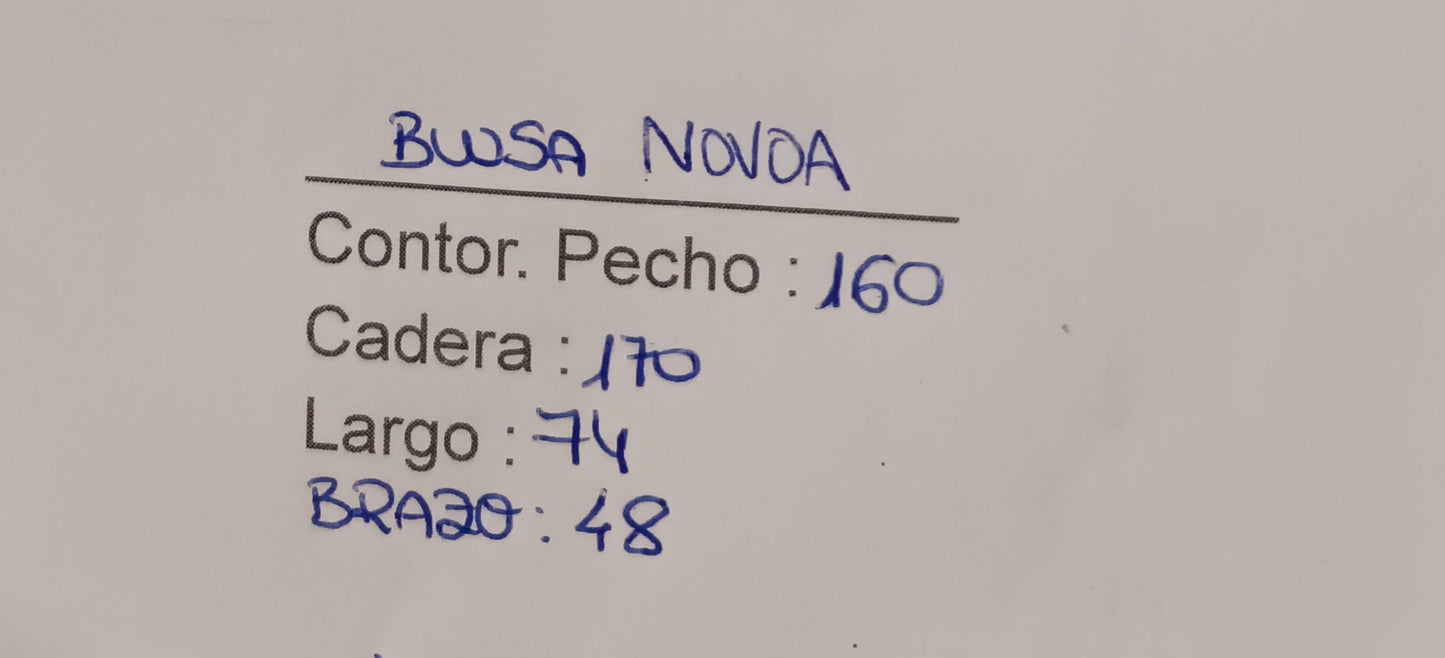 BLUSA NOVOA
Contor. Pecho : 160
Cadera : 170
Largo : 74
BRAZO : 48